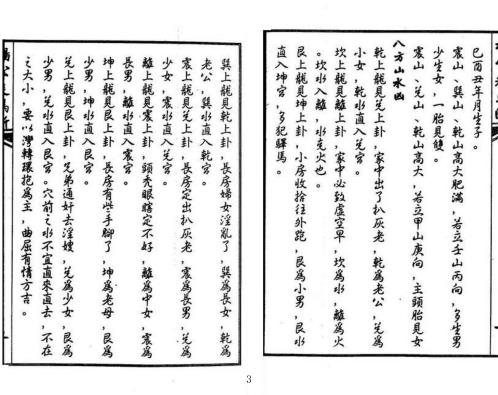 己酉丑年月生子。
震山、巽山、乾山高大肥滿，若立壬山丙向，多生男
少生女，一胎見雙。
震山、兌山、乾山高大，若立甲山庚向，主頭胎見女
八方山水凶
乾上龍見兌上卦，家中出了扒灰老，乾為老公，兌為
小女，乾水直入兌宮。
坎上龍見離上卦，家中必致虛空早，坎為水，離為火
。坎水入離，水先火也。
艮上龍見坤上卦，小房收拾往外跑，艮為小男，艮水
直入坤宮，多犯驛馬。
巽上龍見乾上卦，長房婦女淫亂了，巽為長女，乾為
老公，巽水直入乾宮。
震上龍見兌上卦，長房定出扒灰老，震為長男，兌為
少女，震水直入兌宮。
離上龍見震上卦，頭禿眼瞎定不好，離為中女，震為
長男，離水直入震宮。
坤上龍見艮上卦，長房有些手腳了，坤為老母，艮為
少男，坤水直入艮宮。
兌上龍見艮上卦，兄弟通奸去淫嫂，兌為少女，艮為
少男，兌水直入艮宮。穴前之水不宜直來直去，不在
之大小，要以灣轉環抱為主，曲屈有情方吉。
3